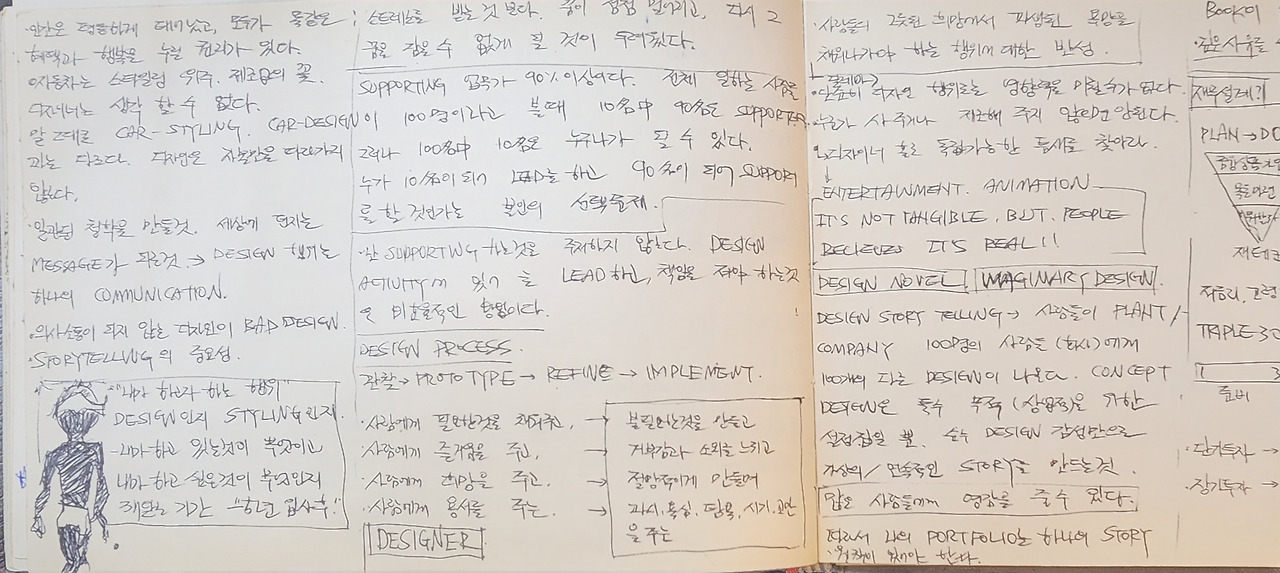 ·인간은 평등하게 태어났고, 모두가 똑같은
혜택과 행복을 누릴 권리가 있다.
·자동차는 스타일링 위주. 제조업의 꽃.
디자이너는 생각 할 수 없다.
말 그대로 CAR-STYLING. CAR-DESIGN
과는 다르다. 디자인은 지향점을 따라가지
않는다.
철학을 만들것. 세상에 던지는
MESSAGE가 되는것. → DESIGN 행위는
하나의 COMMUNICATION.
·의사소통이 되지 않은 디자인이 BAD DESIGN.
·STORYTELLING의 중요성.
"내가 하고자 하는 행위"
DESIGN인지 STYLING인지.
내가 하고 있는것이 무엇이고
내가 하고 싶은것이 무엇인지
기간 "한권 입사후."
스트레스를 받는 것 보다. 꿈이 점점 멀어지고, 다시 그
꿈을 잡을 수 없게 될 것이 두려웠다.
SUPPORTING 업무가 90% 이상이다. 전체 일하는 사람들
이 100명이라고 볼때 10名中 90名은 SUPPORTER.
그러나 100名中 10名은 누구나가 될 수 있다.
누가 10名이 되어 LEAD를 하고 90名이 되어 SUPPORT
를 할 것인가는 본인의 선택문제.
·난 SUPPORTING 하는것을 주저하지 않는다. DESIGN
ACTIVITY가 있기 LEAD하고, 책임을 져야 하는것
은 비효율적인 환경이다.
DESIGN PROCESS.
관찰 → PROTOTYPE → REFINE → IMPLEMENT.
·사람에게 필요한것을 채워주고, → 불필요한것을 만들고
·사람에게 즐거움을 주고, → 거부감과 소외를 느끼고
·사람에게 희망을 주고. → 절망적이게 만들며
·사람에게 용서를 주는. → 과시·욕심·탐욕, 시기·
을 주는
DESIGNER
·사람들의 그릇된 희망에서 파생된 욕망을
채워나가야 하는 행위에 대한 반성.
·단순히 디자인 행위로는 영향력을 미칠수가 없다.
·누군가 사주거나 제조해 주지 않으면 안된다.
디자이너 홀로 독립가능한 틈새를 찾아라.
ENTERTAINMENT. ANIMATION
IT'S NOT TANGIBLE, BUT. PEOPLE
BELIEVES IT'S REAL!!
DESIGN NOVEL. IMAGINARY DESIGN.
DESIGN STORY TELLING → 사람들이 PLANT/
COMPANY 100명의 사람들 (회사)에게
100개의 다른 DESIGN이 나온다. CONCEPT
DESIGN은 특수 목적 (상업적)을 위한
설정집일 뿐. 순수 DESIGN 감성만으로
가상의/연속적인 STORY를 만드는것.
많은 사람들에게 영감을 줄 수 있다.
따라서 나의 PORTFOLIO는 하나의 STORY
·원칙이 있어야 한다.
BOOK이
·깊은 사유를
재무설계?!
PLAN → DO
재테크
TRIPLE-30
1 3
준비
·단기투자 →
·장기투자 →